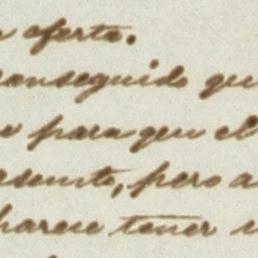 oferta.
conseguido que
para que el
asunto, pero a
parece tener